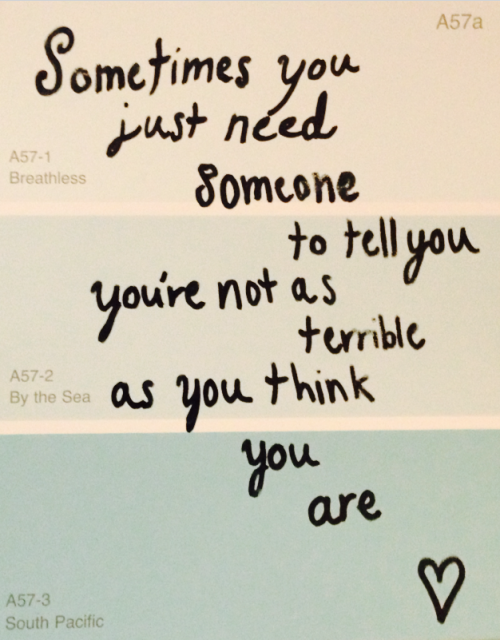 A57a
Sometimes you
just need
A57-1
Breathless
someone
to tell you
you're not as
terrible
A57-2
By the Sea
as you think
you
are
A57-3
South Pacific